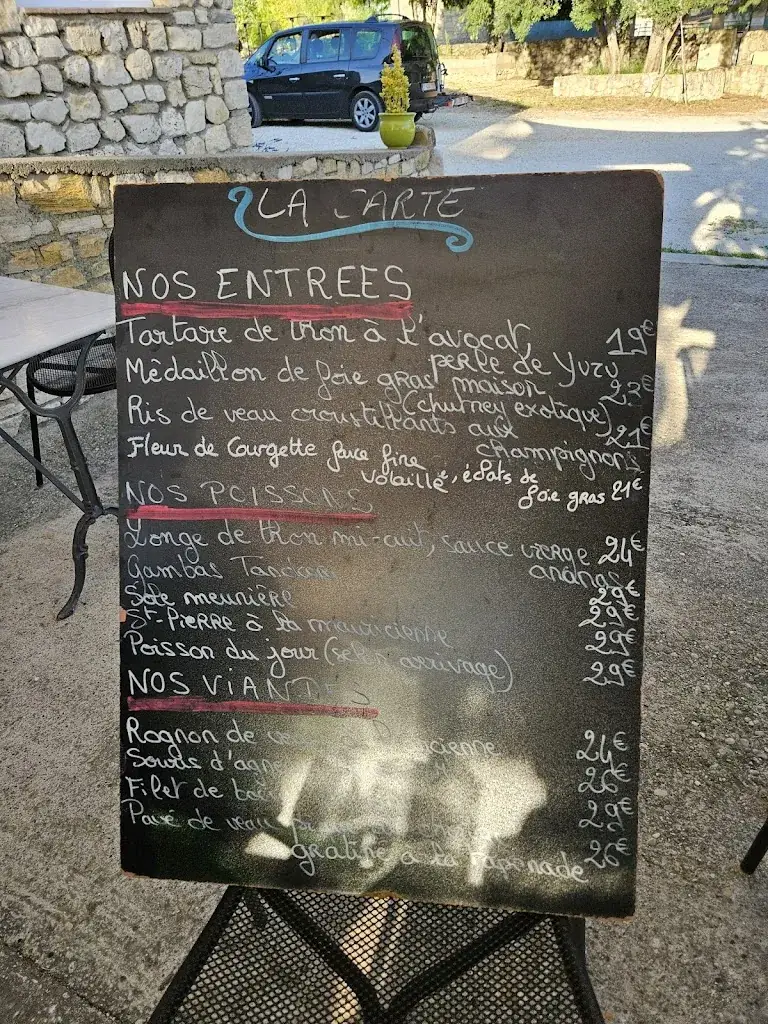 LA CARTE
NOS ENTREES
Tartare de thon à l'avocat, 19€
perle de Yuzu
Médaillon de foie gras maison 23€
(chutney exotique)
Ris de veau croustillants aux 21€
champignons
Fleur de Courgette farce fine
volaille, éclats de
foie gras 21€
NOS POISSONS
Longe de thon mi-cuit, sauce vierge 24€
ananas
Gambas 29€
Sole meunière 29€
St-PIERRE à la mauricienne 29€
Poisson du jour (selon arrivage) 29€
NOS VIANDES
Rognon de 24€
Souris d'agneau 26€
Filet de 29€
Pavé de veau 26€
gratiné à la Tapenade